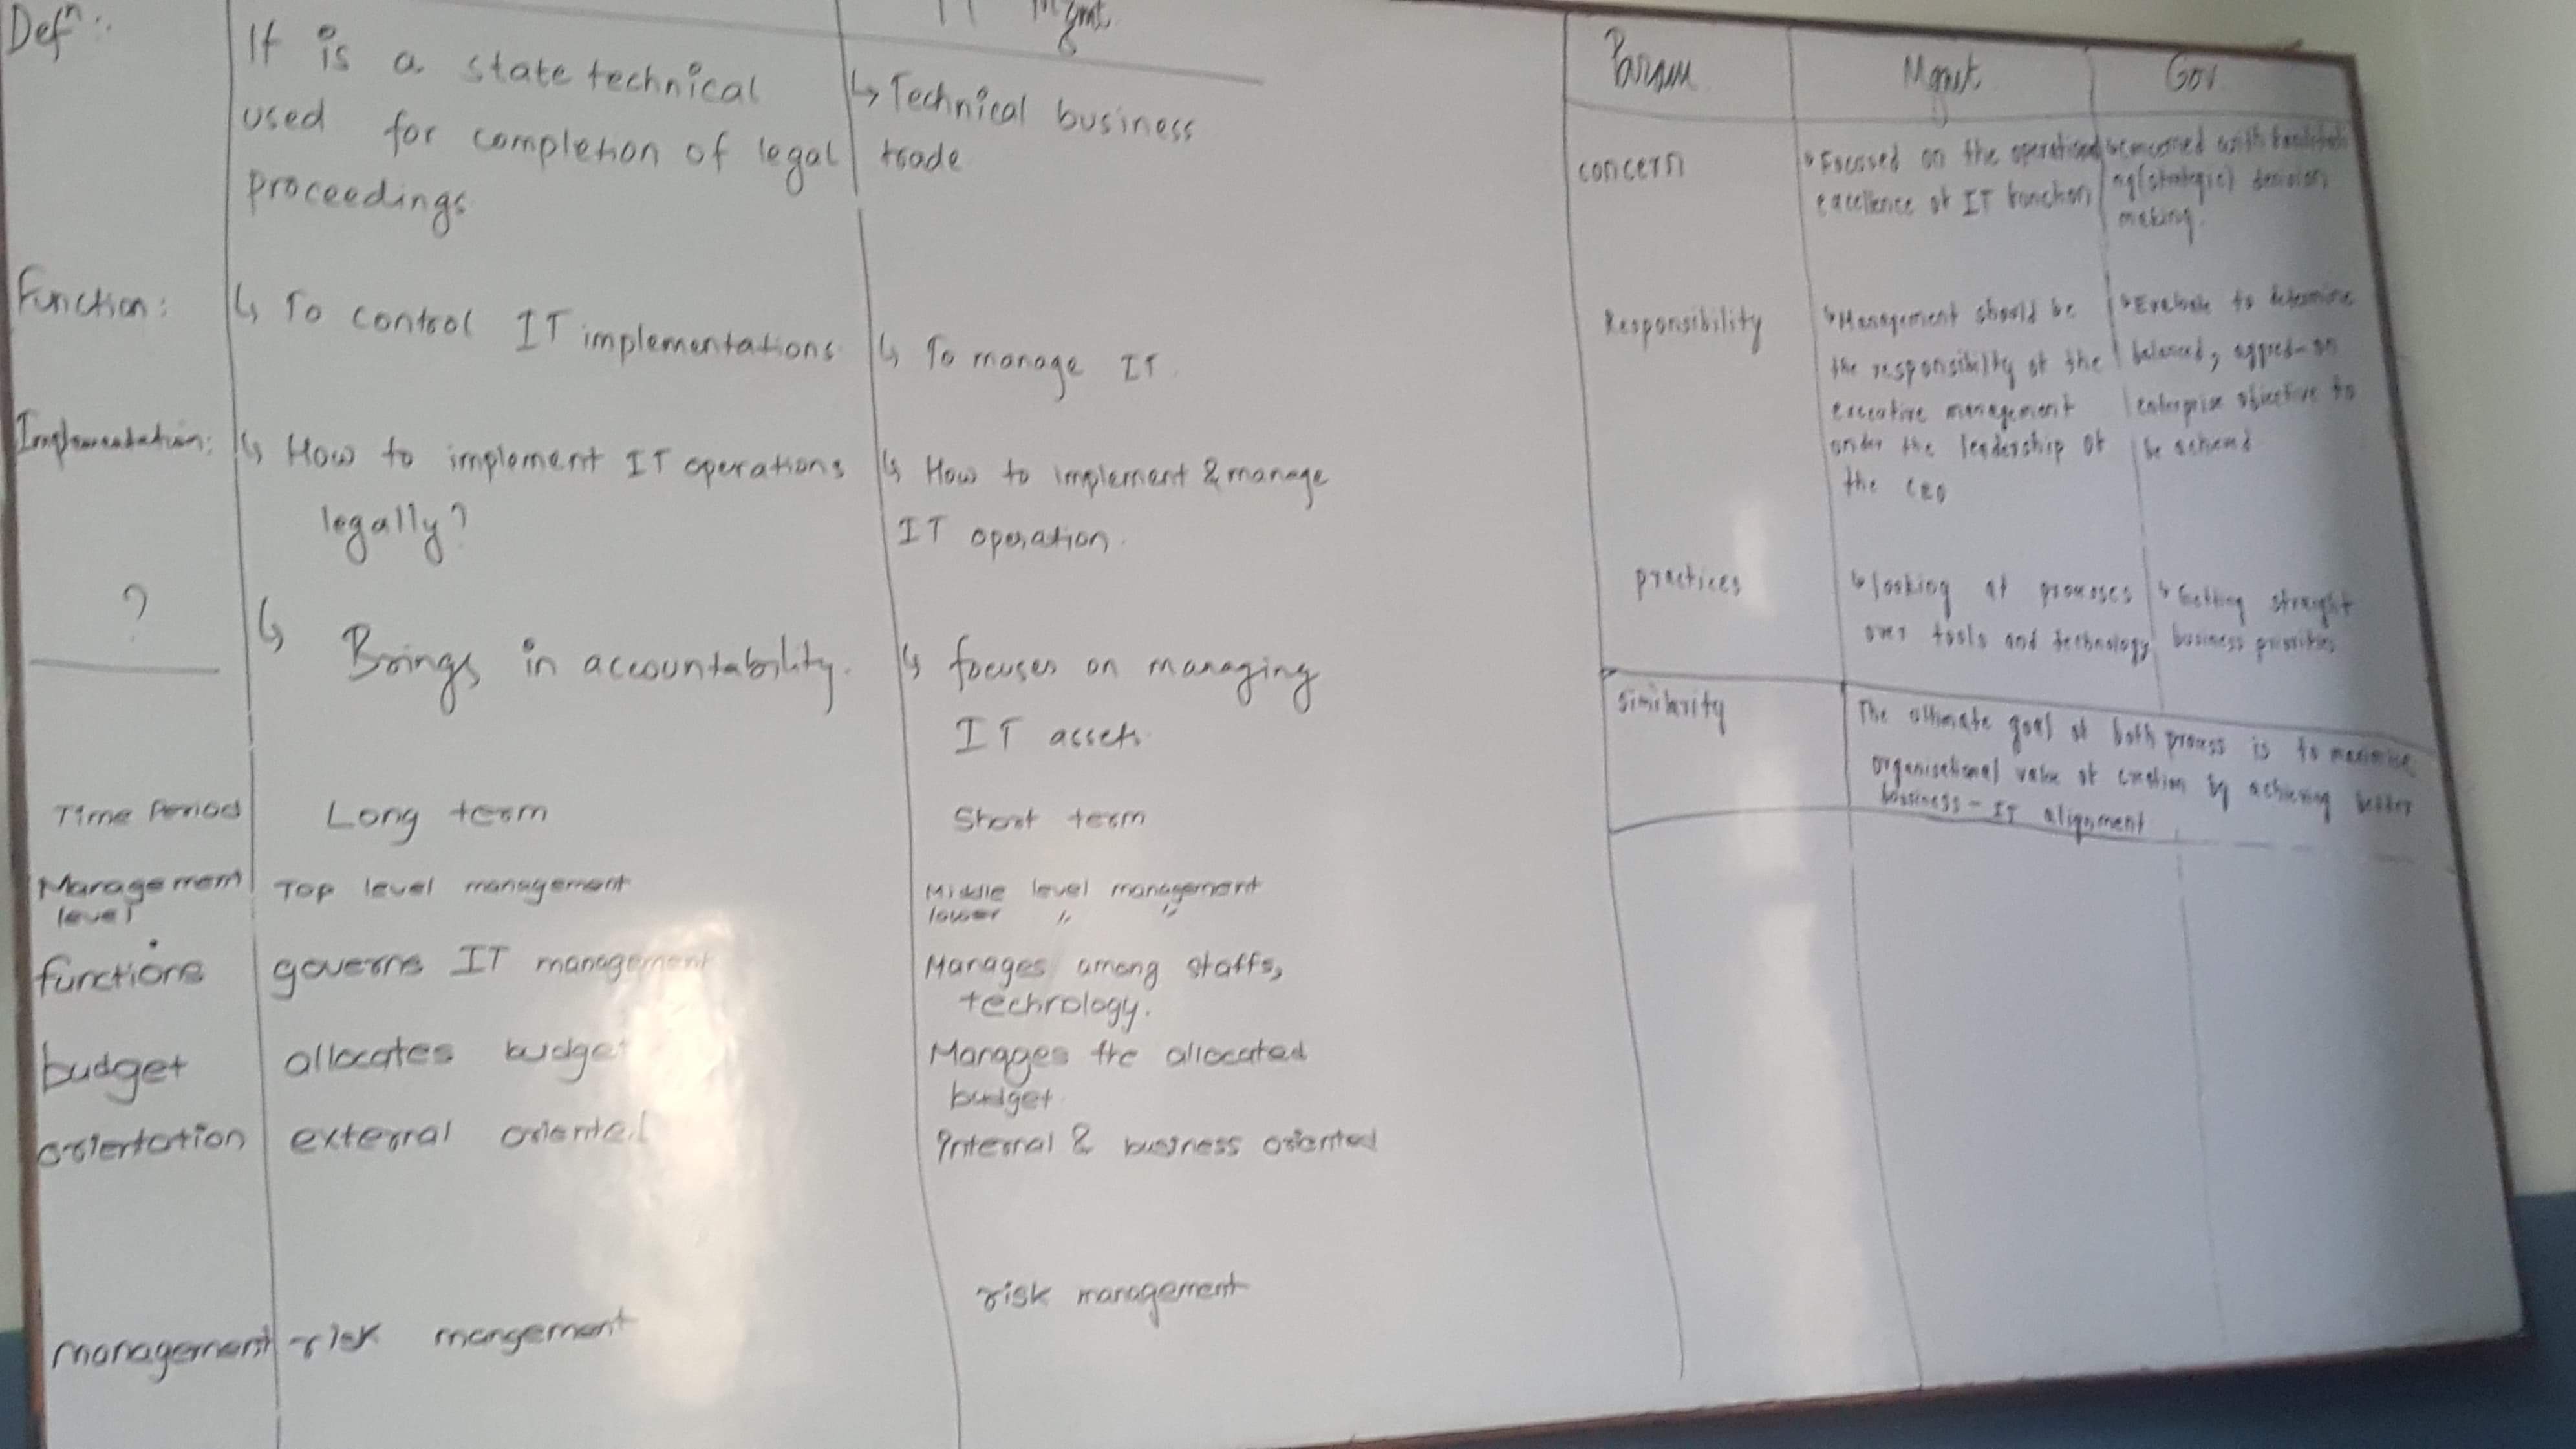 Mgmt.
Defn:
It is a state technical
used for completion of legal
proceedings
↳ Technical business
trade
Function:
↳ To control IT implementations
↳ To manage IT.
Implementation:
↳ How to implement IT operations
legally?
↳ How to implement & manage
IT operation.
?
↳ Brings in accountability.
↳ focuses on managing
IT assets.
Time Period
Long term
Short term
Management
level
Top level management
Middle level management
lower " "
functions
governs IT management
Manages among staffs,
technology.
budget
allocates budget
Manages the allocated
budget.
orientation
external oriented
Internal & business oriented
management
risk mangement
risk management
Param
Mgmt
Gov.
concern
↳ Focussed on the operational
excellence of IT function
↳ concerned with
(strategic) decision
making.
Responsibility
↳ Management should be
the responsibilty of the
executive management
under the leadership of
the CEO
↳ Evaluate to determine
balanced, aggred-on
enterprise objective to
be achieved
practices
↳ looking at processes
over tools and technology
↳ Getting straight
business priorities
Similarity
The ultimate goal of both process is to maximise
organisational value of creation by achieving better
business-IT alignment